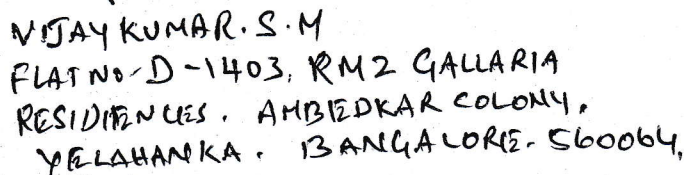 VIJAY KUMAR. S. M
FLAT NO-D-1403, RMZ GALLARIA
RESIDIENCIES. AMBEDKAR COLONY,
YELAHANKA. BANGALORE. 560064,